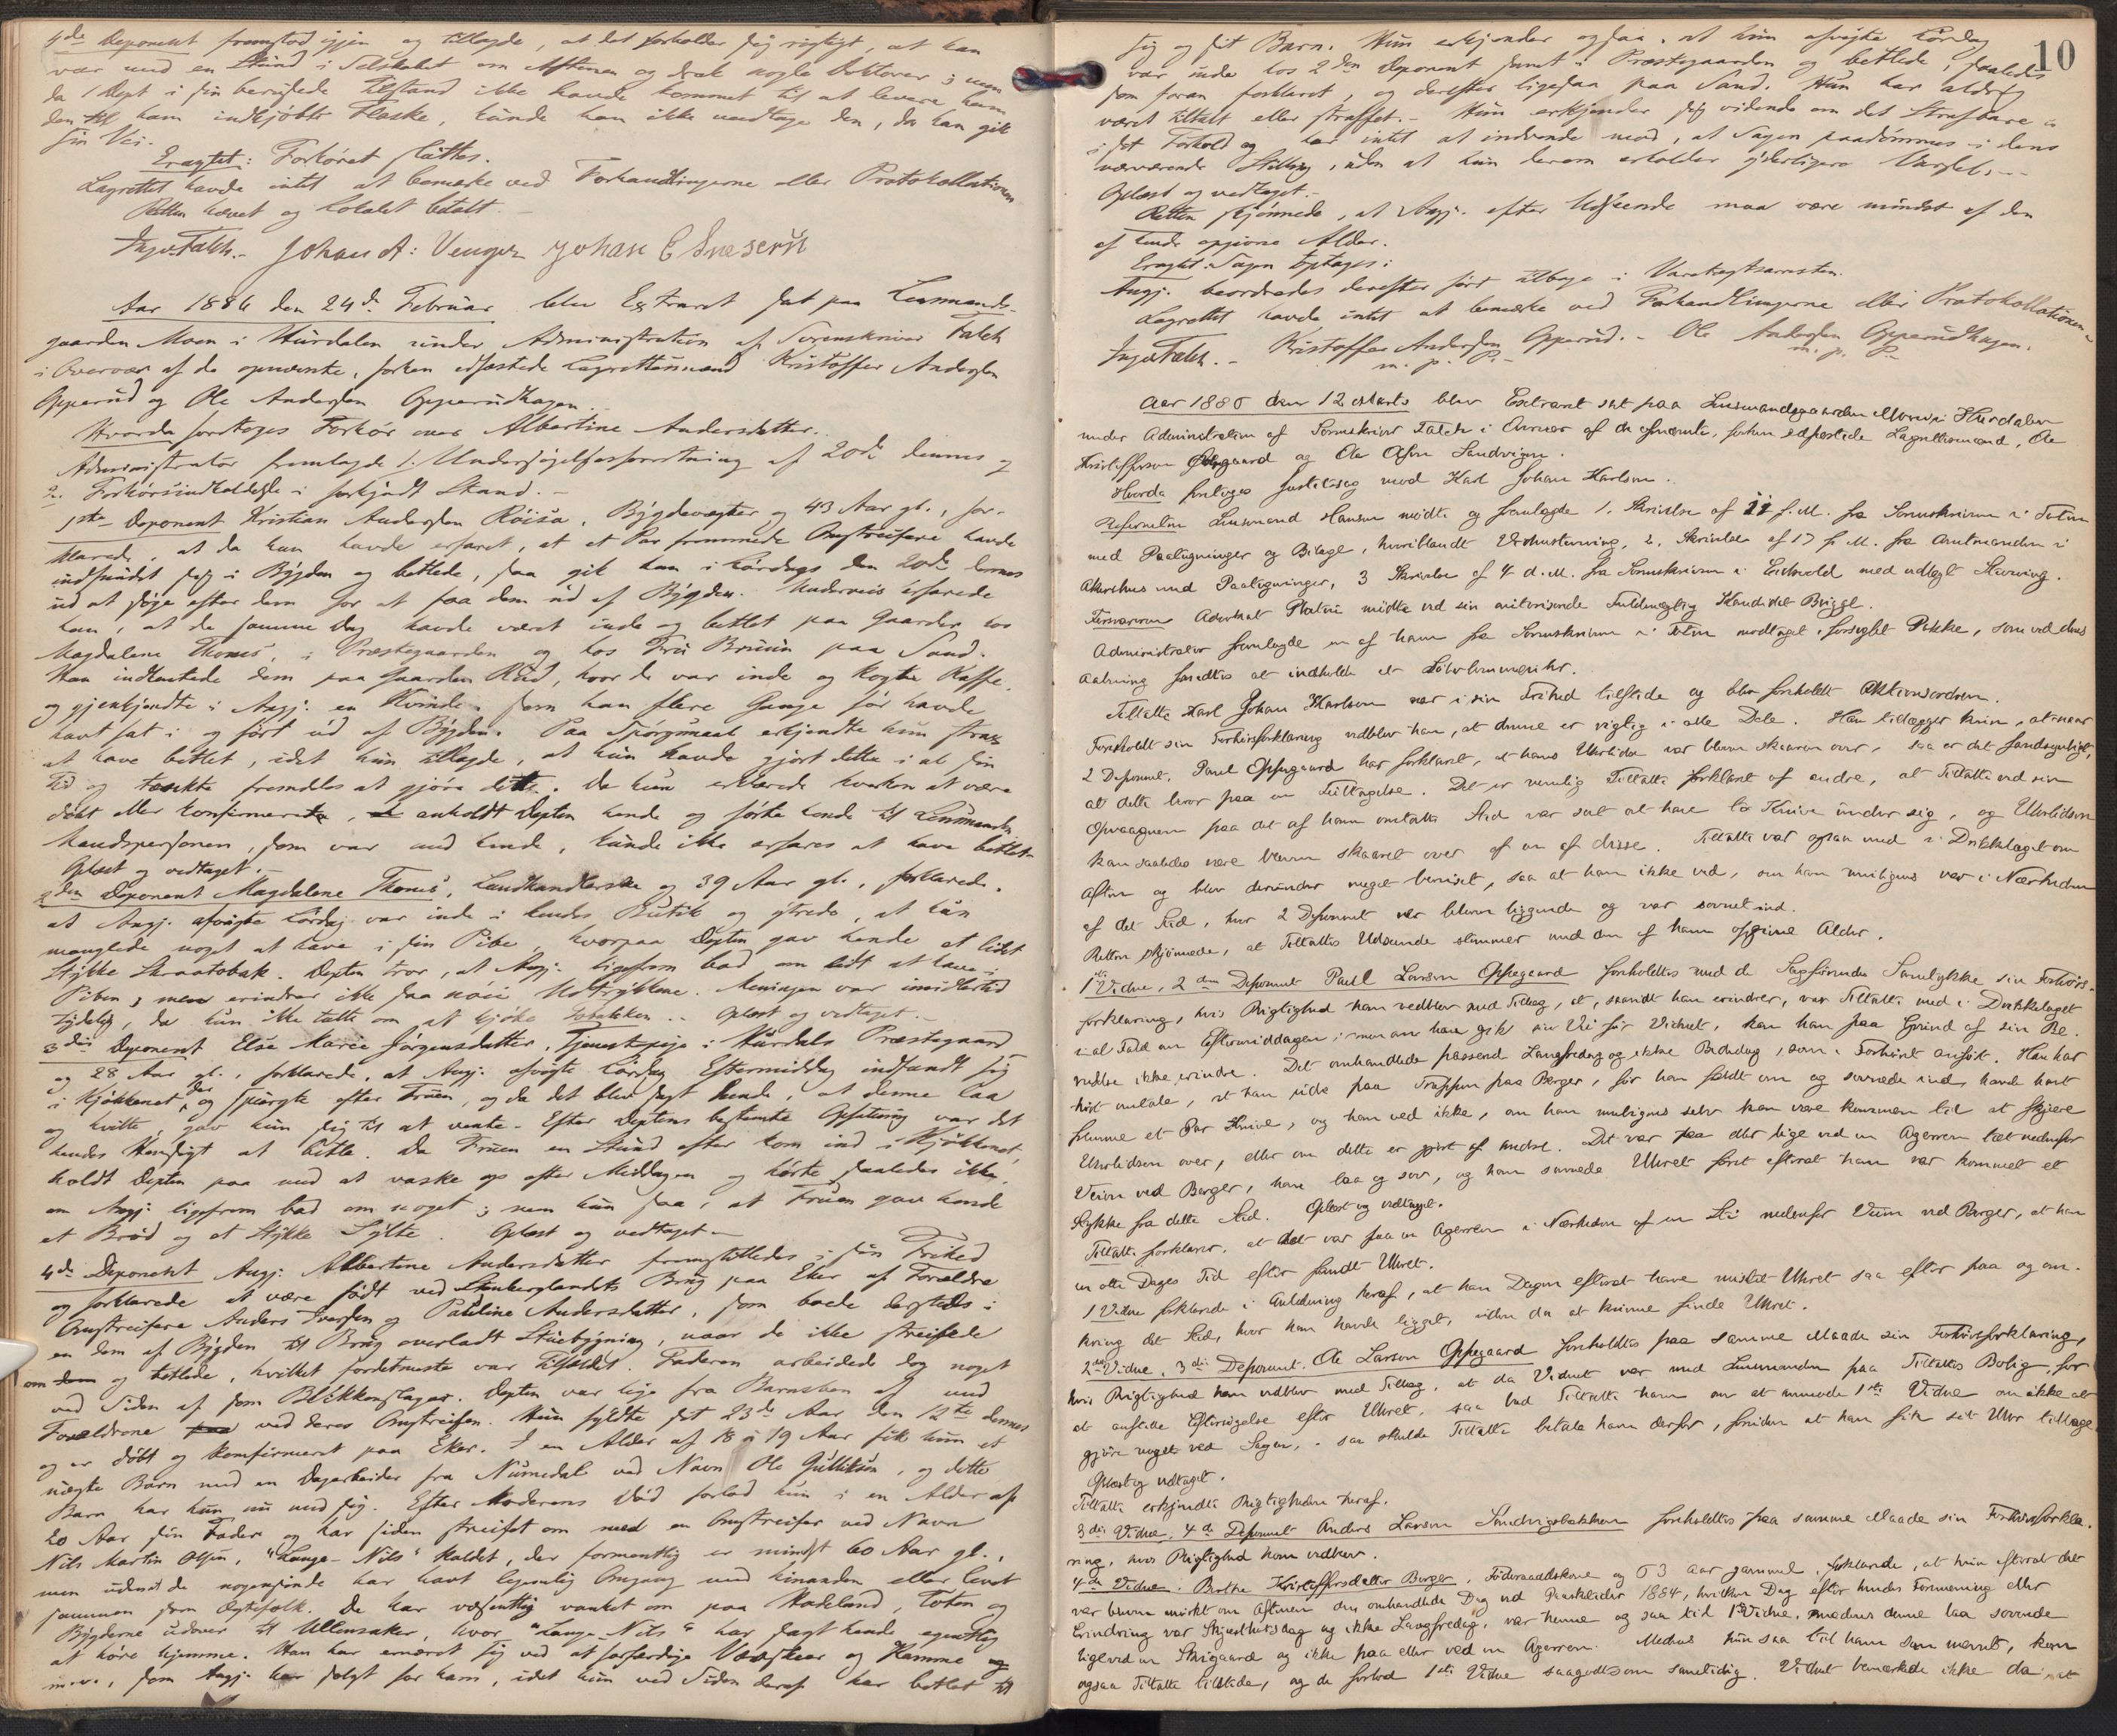 4de Deponent fremstod igjen og tillagde, at det forholder sig rigtigt, at han
var med en Stund i Selskabet om Aftenen og drak nogle Bokteren; men
da 1 Dept i sin berusede Tilstand ikke havde kommet til at levere ham
den til ham indkjøbte Flaske, kunde han ikke modtage den, da han gik
sin Vei.
Eragtet: Forhøret sluttes.
Lagrettet havde intet at bemærke ved Forhandlingerne eller Protokollationen
Retten hævet og Lokalet betalt.
Inga Falch.- Johan A: Venger Johan E
Aar 1886 den 24de Februar blev Extraret sat paa Lensmands-
gaarden Moen i Hurdalen under Administration af Sorenskriver Falch
i Overvær af de opnævnte, forhen edfæstede Lagrettesmænd Kristoffer Andersen
Opperud og Ole Andersen Opperudhagen.
Hvorda foretoges Forhør over Albertine Andersdatter.
Administrator fremlagde 1. Undersøgelsesforretning af 20de dennes og
2. Forhørsindkaldelse i forkyndt Stand.-
1ste Deponent Kristian Andersen Röisa, Bygdevægter og 43 Aar gl., for-
klarede, at da han havde erfaret, at et Par fremmede Omstreifere havde
indfundet sig i Bygden og betlede, saa gik han i Lördags den 20de dennes
ud at söge efter dem for at faa dem ud af Bygden. Underveis erfarede
han, at de samme Dag havde været inde og betlet paa Gaarden hos
Magdalene Thones, i Præstegaarden og hos Fru Bruun paa Sand.
Han indhentede dem paa Gaarden Rud, hvor de var inde og kogte Kaffe,
og gjenkjendte i Angj. en Kvinde, som han flere Gange för havde
havt fat i og fört ud af Bygden. Paa Spörgsmaal erkjendte hun strax
at have betlet, idet hun tillagde, at hun havde gjort dette i al sin
Tid og tænkte fremdeles at gjöre dette. Da hun erklærede hverken at være
döbt eller konfirmeret, anholdt Depten hende og förte hende til Lensmanden.
Mandspersonen, som var med hende, kunde ikke erfares at have betlet.
Oplæst og vedtaget.-
2den Deponent Magdalene Thones, Landhandlerske og 39 Aar gl., forklarede,
at Angj. afvigte Lördag var inde i hendes Butik og ytrede, at hun
manglede noget at have i sin Pibe, hvorpaa Depten gav hende et lidet
Stykke Skraatobak. Depten tror, at Angj. ligefrem bad om lidt at have i
Piben, men erindrer ikke saa nöie Udtrykkene. Meningen var imidlertid
tydelig, da hun ikke talte om at kjöbe Tobakken.. Oplæst og vedtaget.-
3die Deponent Else Marie Jörgensdatter, Tjenestepige i Hurdals Præstegaard
og 28 Aar gl., forklarede, at Angj. afvigte Lördag Eftermiddag indfandt sig
i Kjökkenet, og spurgte efter Fruen, og da det blev sagt hende, at denne laa
og hvilte, gav hun sig til at vente. Efter Deptens bestemte Opfatning var det
hendes Hensigt at betle. Da Fruen en Stund efter kom ind i Kjökkenet,
holdt Depten paa med at vaske op efter Middagen og hörte saaledes ikke,
om Angj. ligefrem bad om noget; men hun saa, at Fruen gav hende
et Bröd og et Stykke Sylte. Oplæst og vedtaget.-
4de Deponent Angj. Albertine Andersdatter fremstilledes i sin Frihed
og forklarede at være födt ved Stenberglandets Brug paa Eker af Forældre
Omstreifere Anders Iversen og Pauline Andersdatter, som boede dersteds i
en dem af Bygden til Brug overladt Stuebygning, naar de ikke streifede
om og betlede, hvilket fordetmeste var Tilfældet. Faderen arbeidede dog noget
ved Siden af som Blikkenslager. Depten var lige fra Barnsben af med
Forældrene ved deres Omstreifen. Hun fyldte sit 23de Aar den 12te dennes
og er döbt og konfirmeret paa Eker. I en Alder af 18 à 19 Aar fik hun et
uægte Barn med en Dagarbeider fra Numedal ved Navn Ole Gulliksen, og dette
Barn har hun nu med sig. Efter Moderens Död forlod hun i en Alder af
20 Aar sin Fader og har siden streifet om med en Omstreifer ved Navn
Nils Martin Olsen, "Lange-Nils" kaldet, der formentlig er mindst 60 Aar gl.,
men uden at de nogensinde har havt legemlig Omgang med hinanden eller levet
sammen som Ægtefolk. De har væsentlig vanket om paa Hadeland, Toten og
Bygderne udover til Ullensaker, hvor "Lange-Nils" har sagt hende egentlig
at höre hjemme. Han har ernæret sig ved at forfærdige Vævskeer og Kamme
m.v., som Angj. har solgt for ham, idet hun ved Siden deraf har betlet til
10
sig og sit Barn. Hun erkjender ogsaa, at hun afvigte Lördag
var inde hos 2den Deponent samt i Præstegaarden og betlede, saaledes
som foran forklaret, og derefter ligesaa paa Sand. Hun har aldrig
været tiltalt eller straffet.- Hun erkjender sig vidende om det Strafbare
i sit Forhold og har intet at indvende mod, at Sagen paadömmes i dens
nærværende Stilling, uden at hun derom erholder yderligere Varsel.--
Oplæst og vedtaget.-
Retten skjönnede, at Angj. efter Udseende maa være mindst af den
af hende opgivne Alder.
Eragtet: Sagen optages:
Angj. beordredes derefter fört tilbage i Varetægtsarresten.
Lagrettet havde intet at bemærke ved Forhandlingerne eller Protokollationen.-
Inga Falch.- Kristoffer Andersen Opperud.- Ole Andersen Opperudhagen.
m. p. P.- m. p. P.-
Aar 1886 den 12 Marts blev Extraret sat paa Lensmandsgaarden Moen i Hurdalen
under Administration af Sorenskriver Falch i Overvær af de opnævnte, forhen edfæstede Lagrettesmænd, Ole
Kristoffersen Ødegaard og Ole Olsen Sandvigen.
Hvorda foretoges Justitssag mod Karl Johan Karlsen.
Referenten Lensmand Hansen mødte og fremlagde 1. Skrivelse af 11 f. M. fra Sorenskriveren i Toten
med Paategninger og Bilage, hvoriblandt Ordensutning, 2. Skrivelse af 17 f. M. fra Amtmanden i
Akershus med Paategninger, 3 Skrivelse af 4 d. M. fra Sorenskriveren i Eidsvold med udlagt Stevning.
Forsvareren Advokat Platou mødte ved sin autoriserede Fuldmægtig Kandidat Brigge.
Administrator fremlagde en af ham fra Sorenskriveren i Toten modtaget forseglet Pakke, som ved dens
Aabning fandtes at indeholde et Sölvlommeuhr.
Tiltalte Karl Johan Karlsen var i sin Frihed tilstede og blev foreholdt Aktionsordren.
Foreholdt sin Forhørsforklaring vedblev han, at denne er rigtig i alle Dele. Han tillægger kun, at naar
2 Deponent, Paul Oppegaard har forklaret, at hans Uhrlidse var bleven skaaren over, saa er det sandsynligt,
at dette beror paa en Feiltagelse. Det er nemlig Tiltalte forklaret af andre, at Tiltalte ved sin
Opvaagnen paa det af ham omtalte Sted var sat at have to Knive under sig, og Uhrlidsen
kan saaledes være bleven skaaret over af en af disse. Tiltalte var ogsaa med i Drikkelaget om
Aften og blev derunder meget beruset, saa at han ikke ved, om han muligens var i Nærheden
af det Sted, hvor 2 Deponent var bleven liggende og var sovnet ind.
Retten skjönnede, at Tiltaltes Udseende stemmer med den af ham opgivne Alder.
1ste Vidne, 2den Deponent Paul Larsen Oppegaard foreholdtes med de Sagførendes Samtykke sin Forhørs-
forklaring, hvis Rigtighed han vedblev med Tillæg, at, saavidt han erindrer, var Tiltalte med i Drikkelaget
ial Fald om Eftermiddagen; men om han gik sin Vei før Vidnet, kan han paa Grund af sin Be-
ruselse ikke erindre. Det omhandlede passend Langfredag og ikke Bededag, som i Forhöret anført. Han har
hørt omtale, at han sidst paa Trappen paa Berger, før han faldt om og sovnede ind, havde havt
fremme et Par Knive, og han ved ikke, om han muligens selv kan være kommen til at skjære
Uhrlidsen over, eller om dette er gjort af andre. Det var paa eller lige ved en Agerren tæt nedenfor
Veien ved Berger, han laa og sov, og han savnede Uhret først efterat han var kommet et
Stykke fra dette Sted. Oplæst og vedtaget.
Tiltalte forklarer, at det var paa en Agerren i Nærheden af en Sti nedenfor Veien ved Berger, at han
en otte Dages Tid efter fandt Uhret.
1 Vidne forklarede i Anledning heraf, at han Dagen efterat have mistet Uhret saa efter paa og om-
kring det Sted, hvor han havde ligget, uden da at kunne finde Uhret.
2det Vidne, 3die Deponent Ole Larsen Oppegaard foreholdtes paa samme Maade sin Forhørsforklaring,
hvis Rigtighed han vedblev med Tillæg, at da Vidnet var med Lensmanden paa Tiltaltes Bolig for
at anstille Eftersögelse efter Uhret, saa bad Tiltalte ham om at anmode 1ste Vidne om ikke at
gjöre noget ved Sagen, saa skulde Tiltalte betale ham derfor, foruden at han fik sit Uhr tilbage.
Oplæst og vedtaget.
Tiltalte erkjendte Rigtigheden heraf.
3die Vidne, 4de Deponent Anders Larsen Sandvigsbakken foreholdtes paa samme Maade sin Forhørsforkla-
ring, hvis Rigtighed han vedblev.
4de Vidne. Berthe Kristoffersdatter Berger, Föderaadskone og 63 Aar gammel, forklarede, at hun efterat det
var bleven mörkt om Aftenen den omhandlede Dag ved Paasketider 1884, hvilken Dag efter hendes Formening eller
Erindring var Skjærthorsdag og ikke Langfredag, var henne og saa til 1ste Vidne, medens denne laa sovende
lige ved en Skigaard og ikke paa eller ved en Agerren. Medens hun saa til ham som nævnt, kom
ogsaa Tiltalte tilstede, og de forlod 1ste Vidne saagodtsom samtidig. Vidnet bemærkede ikke da, at